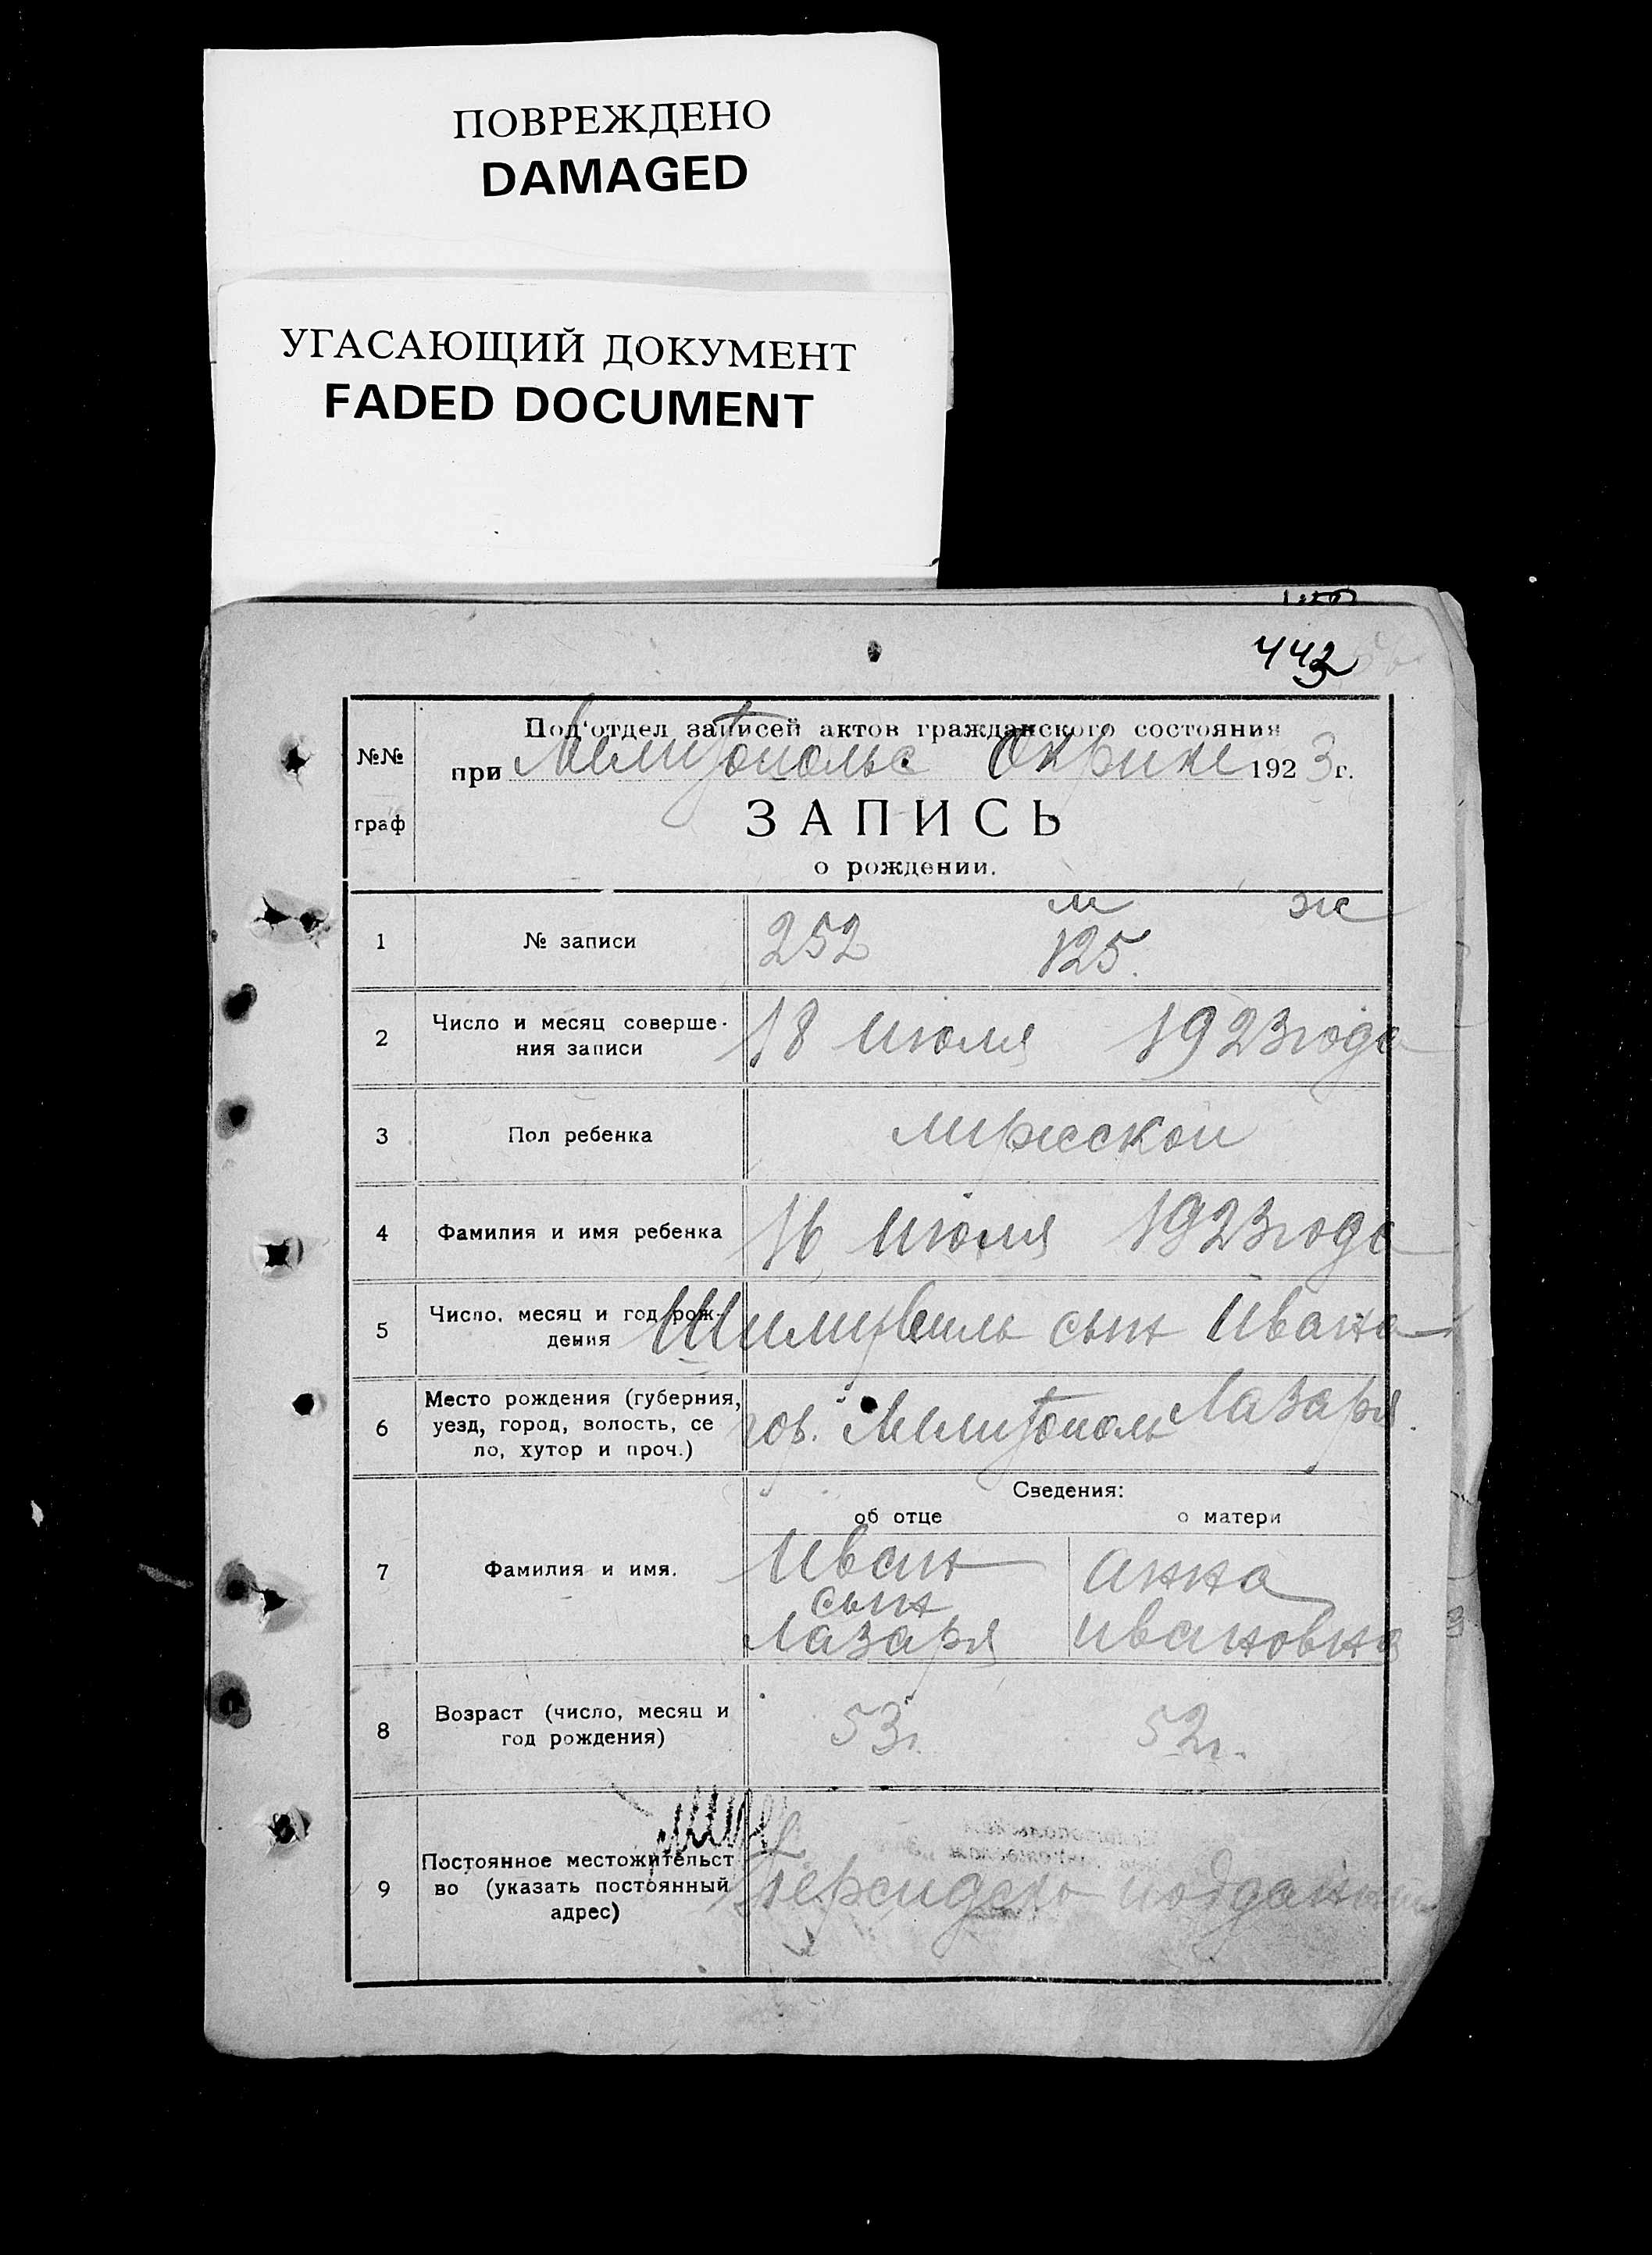 ПОВРЕЖДЕНО
DAMAGED
УГАСАЮЩИЙ ДОКУМЕНТ
FADED DOCUMENT
442
№№
граф
Под'отдел записей актов гражданского состояния
при Мелитопольс Окрике 1923 г.
ЗАПИСЬ
о рождении.
м ж
1 № записи 252 125.
2 Число и месяц соверше- 18 июля 1923 года
ния записи
3 Пол ребенка мужской
4 Фамилия и имя ребенка 16 июля 1923 года
5 Число, месяц и год рож- сын Ивана
дения
Лазаря.
6 Место рождения (губерния, гор. Мелитополь
уезд, город, волость, се
ло, хутор и проч.)
Сведения:
об отце о матери
7 Фамилия и имя. Иван Анна
сын
Лазаря Ивановна
8 Возраст (число, месяц и 53 г. 52 г.
год рождения)
9 Постоянное местожительст
во (указать постоянный подданн
адрес)